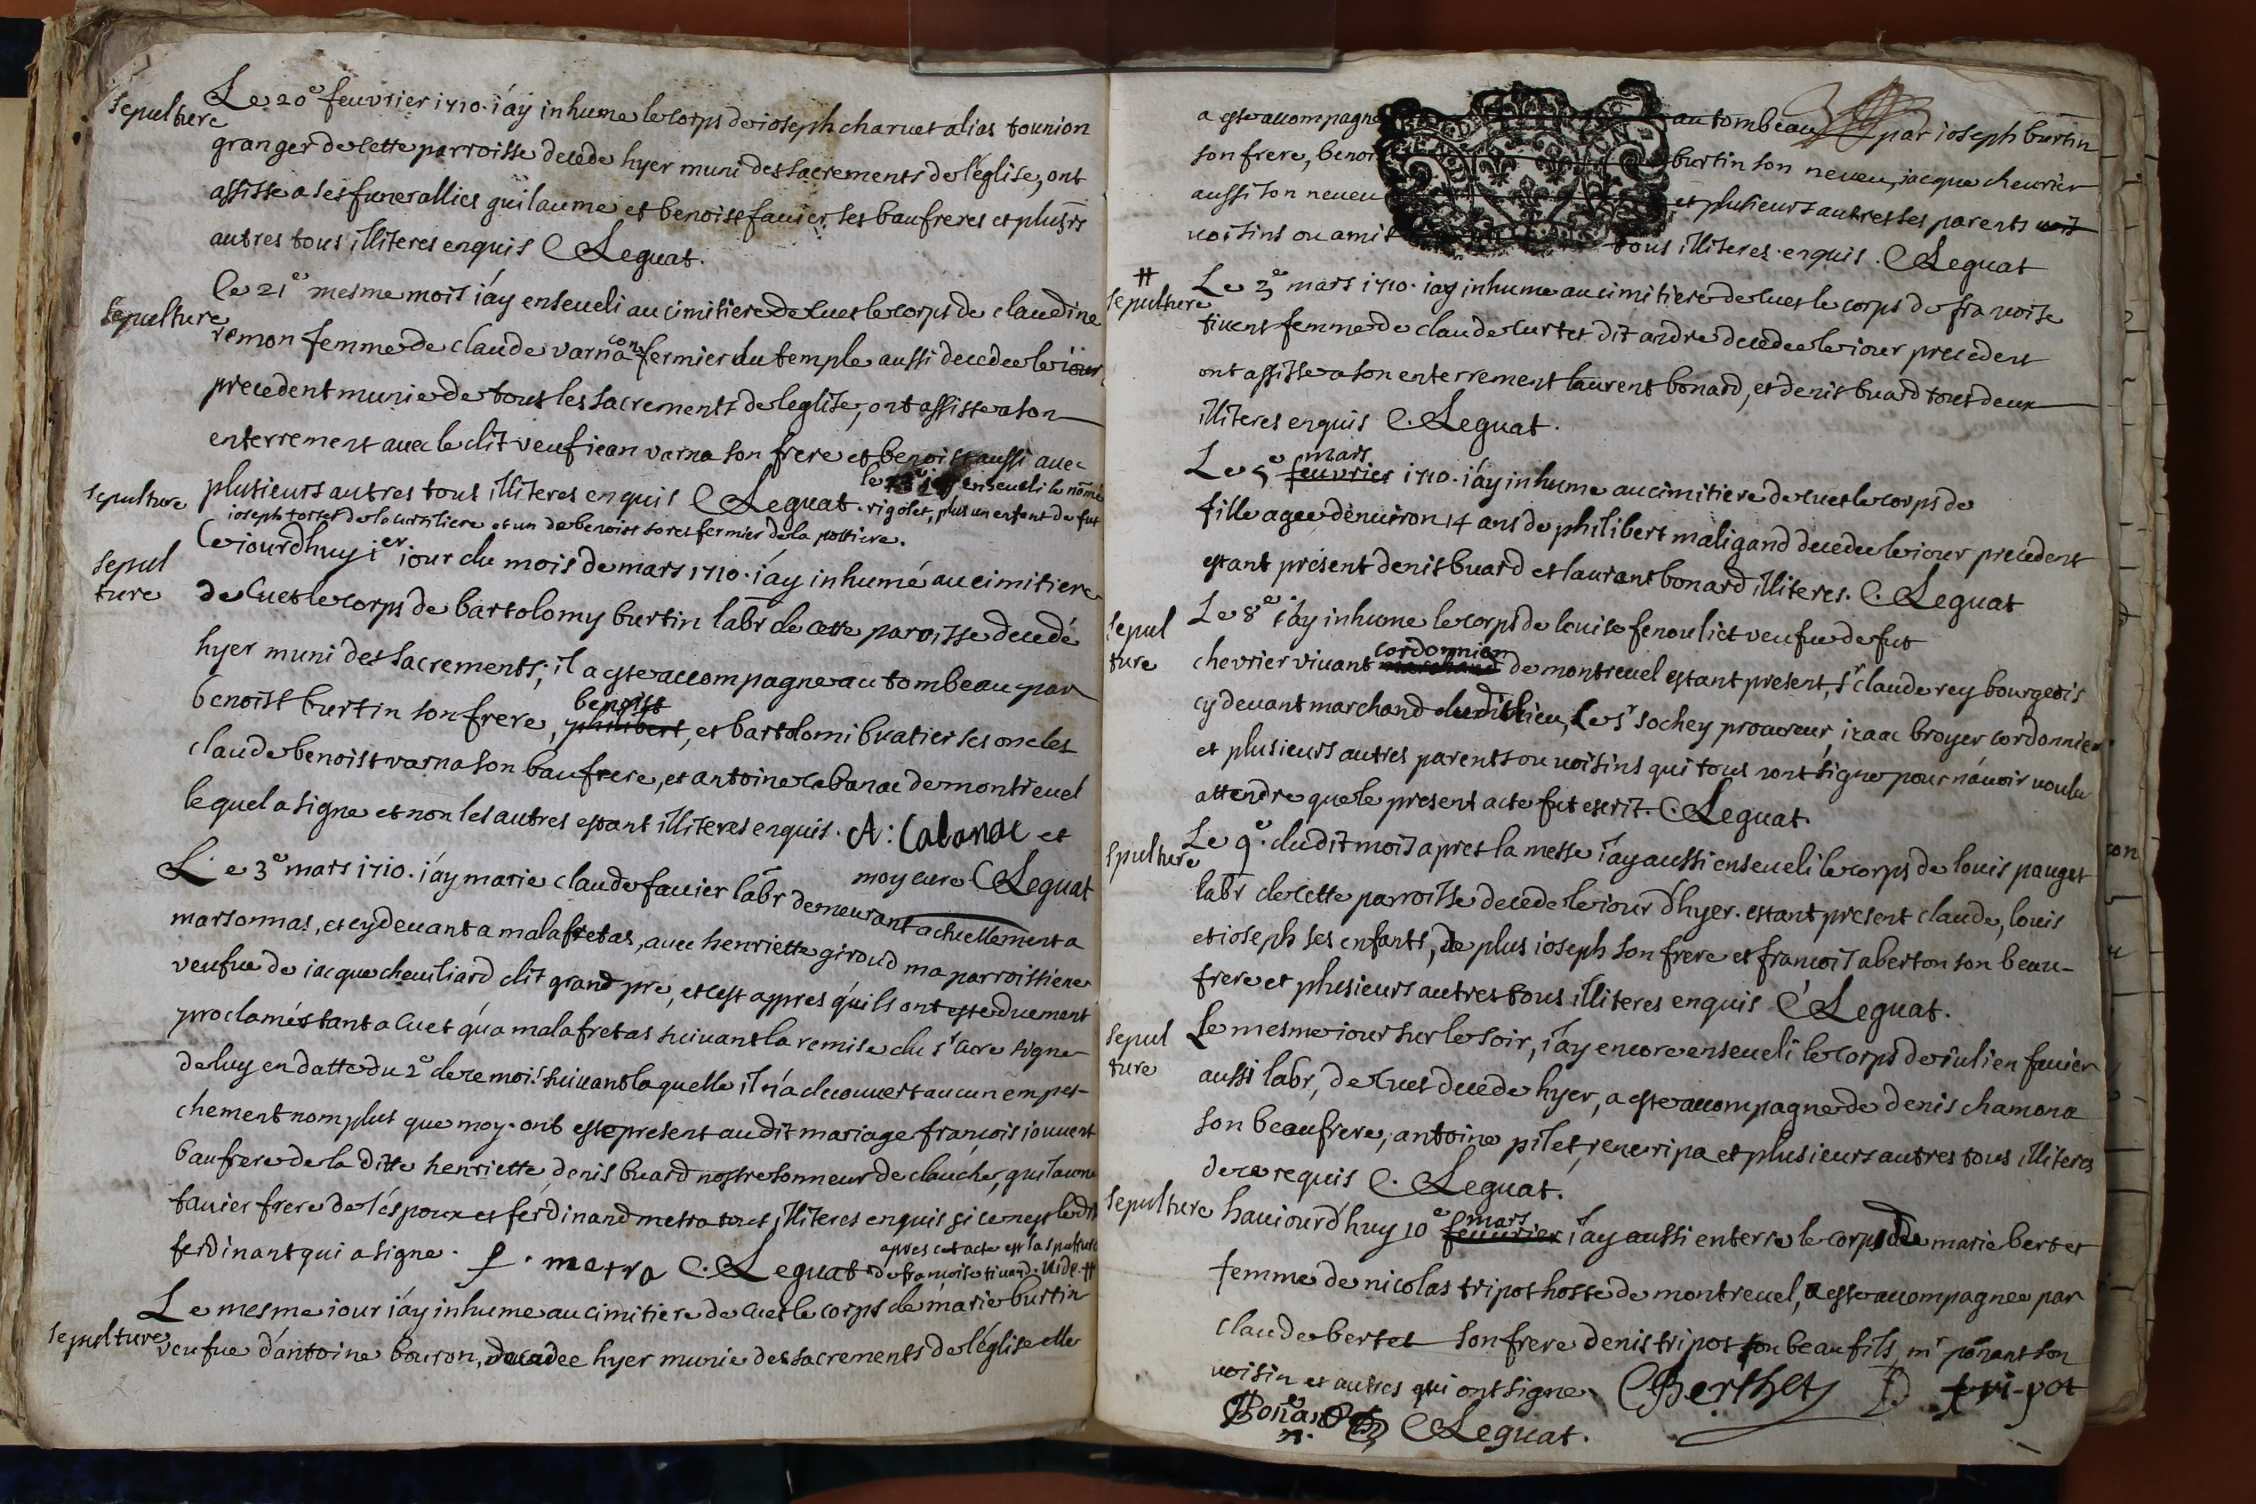 sepulture
Le 20e feuvrier 1710. i'ay inhume le corps de ioseph charuet alias tounion
granger de cette parroisse decede hyer muni des sacrements de l'église, ont
assisse a ses funerallies guilaume et benoist fauier ses baufreres et plusrs
autres tous illiteres enquis C Leguat.
sepulture
Ce 21e mesme mois i'ay enseueli au cimitiere de Cuet le corps de claudine
remon femme de claude varna fermier du temple aussi decedee le iour
precedent munie de tous les sacrements de leglise, ont assisse a son
enterrement auec le dit veuf iean varna son frere et benoist aussi auec
plusieurs autres tous illiteres enquis C Leguat.
sepulture
le i'ay enseueli le nõmé
rigolet, plus un enfent de fut
ioseph et un de benoist fermier de la
sepul
ture
Ce iourdhuy 1er iour du mois de mars 1710. i'ay inhumé au cimitiere
de Cuet le corps de bartolomy burtin labr de cette paroisse decedé
hyer muni des sacrements; il a este accompagne au tombeau par
benoist burtin son frere, philibert benoist, et bartolomi buatier ses oncles
claude benoist varna son baufrere, et antoine cabanac de montreuel
lequel a signe et non les autres estant illiteres enquis. A: Cabanac et
moy cure C Leguat
Le 3e mars 1710. i'ay marie claude fauier labr demeurant actuellement a
marsonnas, et cy deuant a malafretas, auec henriette giroud ma parroissiene
veufue de iacque cheuiliard dit grand pre, et cest appres qu'ils ont este duement
proclamés tant a Cuet qu'a malafretas suiuant la remise du sr Cure signe
de luy en datte du 2e de ce mois suiuant laquelle il n'a decouuert aucun empes-
chement nomplus que moy. ont este present audit mariage francois iouuent
baufrere de la ditte henriette, denis buard nostre sonneur de clauche, guilaume
fauier frere de l'éspoux et ferdinand metra tous illiteres enquis si ce nest ledit
ferdinant qui a signe. f. metra C. Leguat
apres cet acte est la sepulture
de francoise tiuent. vide #
sepulture
Le mesme iour i'ay inhume au cimitiere de Cuet le corps de marie burtin
veufue d'antoine bouron, decedee hyer munie des sacrements de l'église elle
a este accompagne au tombeau par ioseph burtin
son frere, benoi burtin son neveu, iacque cheurier
aussi son neueu et plusieurs autres ses parents
uoisins ou amis tous illiteres enquis. C Leguat
#
sepulture
Le 3e mars 1710. iay inhume au cimitiere de Cuet le corps de francoise
tiuent femme de claude Curtet dit andre decedee le iour precedent
ont assisse a son enterrement laurent bonard, et denis buard tous deux
illiteres enquis C. Leguat.
Le 5e feuvrier mars 1710. i'ay inhume au cimitiere de Cuet le corps de
fille agee denuiron 14 ans de philibert maligand decedee le iour precedent
estant présent denis buard et laurant bonard illiteres. C. Leguat
sepul
ture
Le 8e i'ay inhume le corps de louise fenouliet veufue de fut
chevrier viuant cordonnier de montreuel estant present, sr claude rey bourgeois
cy deuant marchand dudit lieu, Le sr sochey procureur, izaac broyer cordonnier
et plusieurs autres parents ou uoisins qui tous nont signe pour n'auoir voulu
attendre que le present acte fut escrit. C. Leguat.
spulture
Le 9e. dudit mois apres la messe i'ay aussi enseueli le corps de louis pauget
labr de cette parroisse decede le iour d'hyer. estant present claude, louis
et ioseph ses enfants, de plus ioseph son frere et francois aberton son beau-
frere et plusieurs autres tous illiteres enquis C Leguat.
sepul
ture
Le mesme iour sur le soir, i'ay encore enseueli le corps de iulien fauier
aussi labr, de Cuet decede hyer, a este accompagne de denis chamona
son beaufrere, antoine pilet, rene ripa et plusieurs autres tous illiteres
de ce requis C. Leguat.
sepulture
hauiourd'huy 10e feuurier mars i'ay aussi enterre le corps de marie bertet
femme de nicolas tripot hoste de montreuel, a este accompagnee par
claude bertet son frere denis tripot son beau fils, mr ponant son
uoisin et autres qui ont signe CBerthet D tri-pot
Bonan C Leguat.